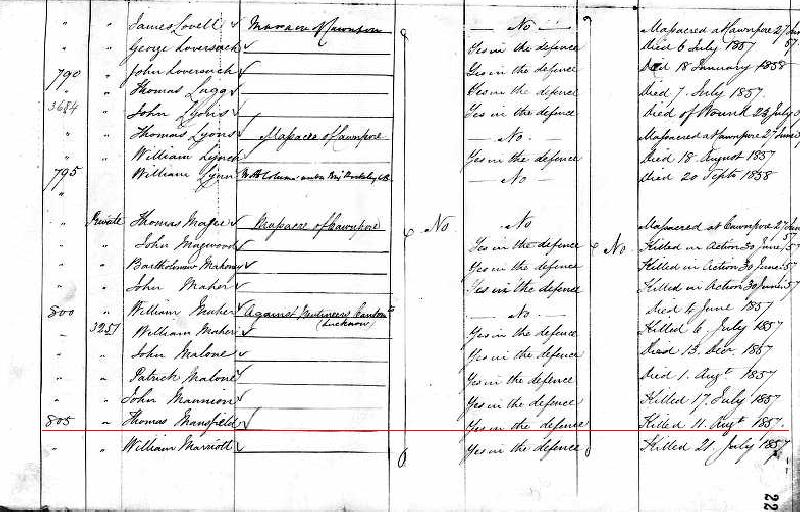 " " James Lovett Massacre of Cawnpore — No — Massacred at Cawnpore 27 June 57
" " George Loversuch Yes in the defence Died 6 July 1857
790 " John Loversuch Yes in the defence Died 18 January 1858
" " Thomas Lugg Yes in the defence Died 7 July 1857.
3684 John Lyons Yes in the defence Died of Wound 23 July
" " Thomas Lyons Massacre of Cawnpore — No — Massacred at Cawnpore 27 June 57
" " William Lynch Yes in the defence Died 18 August 1857
795 " William Lynn With Column under — No — Died 20 Septr 1858
"
" Private Thomas Magee Massacre of Cawnpore No No Massacred at Cawnpore 27 June 57
" " John Magwood Yes in the defence No Killed in Action 30 June, 57
" " Bartholomew Mahony Yes in the defence Killed in Action 30 June, 57
" " John Maher Yes in the defence Killed in Action 30 June, 57
800 " William Maher Against Mutineers (Lucknow) — No — Died 4 June 1857
" 3257 William Maher Yes in the defence Killed 6 July 1857
" " John Malone Yes in the defence Died 13 Decr 1857
" " Patrick Malone Yes in the defence Died 1 Augt 1857
" " John Manneon Yes in the defence Killed 17 July 1857
805 " Thomas Mansfield Yes in the defence Killed 11 Augt 1857.
" William Marriott Yes in the defence Killed 21 July 1857
22